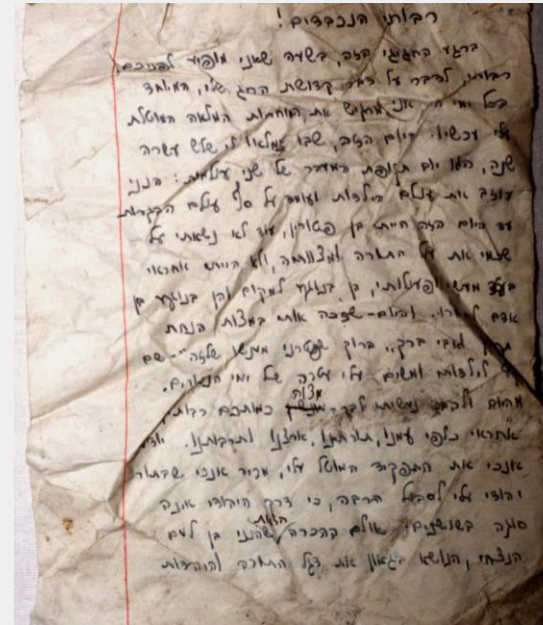 רבותי הנכבדים!
ברגע החגיגי הזה, בשעה שאני מופיע לפניכם,
רבותי, לדבר על דבר קדושת החג שלי, המיוחד
בכל ימי חיי אני מרגיש את האחריות המלאה המוטלת
עלי עכשיו. היום הזה, שבו נמלאו לי שלש עשרה
שנה, הוא יום תקופת המעבר של שני עולמות: הנני
עוזב את עולם הילדות ועומד על סף עולם הבגרות
עד היום הזה הייתי בן פטורין, עוד לא נשאתי על
שכמי את על התורה ומצוותיה, ולא הייתי אחראי
בעד מעשי ופעולותי, הן בנוגע למקום והן בנוגע בן
אדם לחברו. והיום - שזכה אותי במצות הנחת
אבי ברך,, ברוך שפטרני מענשו שלזה" - שם
לילדות ומשים עלי עטרה של ימי הנעורים.
מהיום והלאה נעשיתי לבר - מצוה כמותכם רבותי,
אחראי כלפי עמנו, תורתנו, ארצנו ותרבותנו. יודע
אנכי את התפקיד המוטל עלי, מכיר אנכי שבתור
יהודי עלי לסבול הרבה, כי דרך היהודי אינה
סוגה בשושנים. אולם ההכרה הזאת שהנני בן לעם
הנצחי, הנושא בגאון את דגל התורה והיהדות